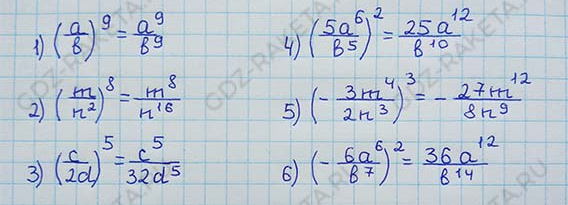 1) (a/b)^9 = a^9/b^9
2) (m/n^2)^8 = m^8/n^16
3) (c/2d)^5 = c^5/32d^5
4) (5a^6/b^5)^2 = 25a^12/b^10
5) (- 3m^4/2n^3)^3 = - 27m^12/8n^9
6) (- 6a^6/b^7)^2 = 36a^12/b^14
GDZ-RAKETA.RU